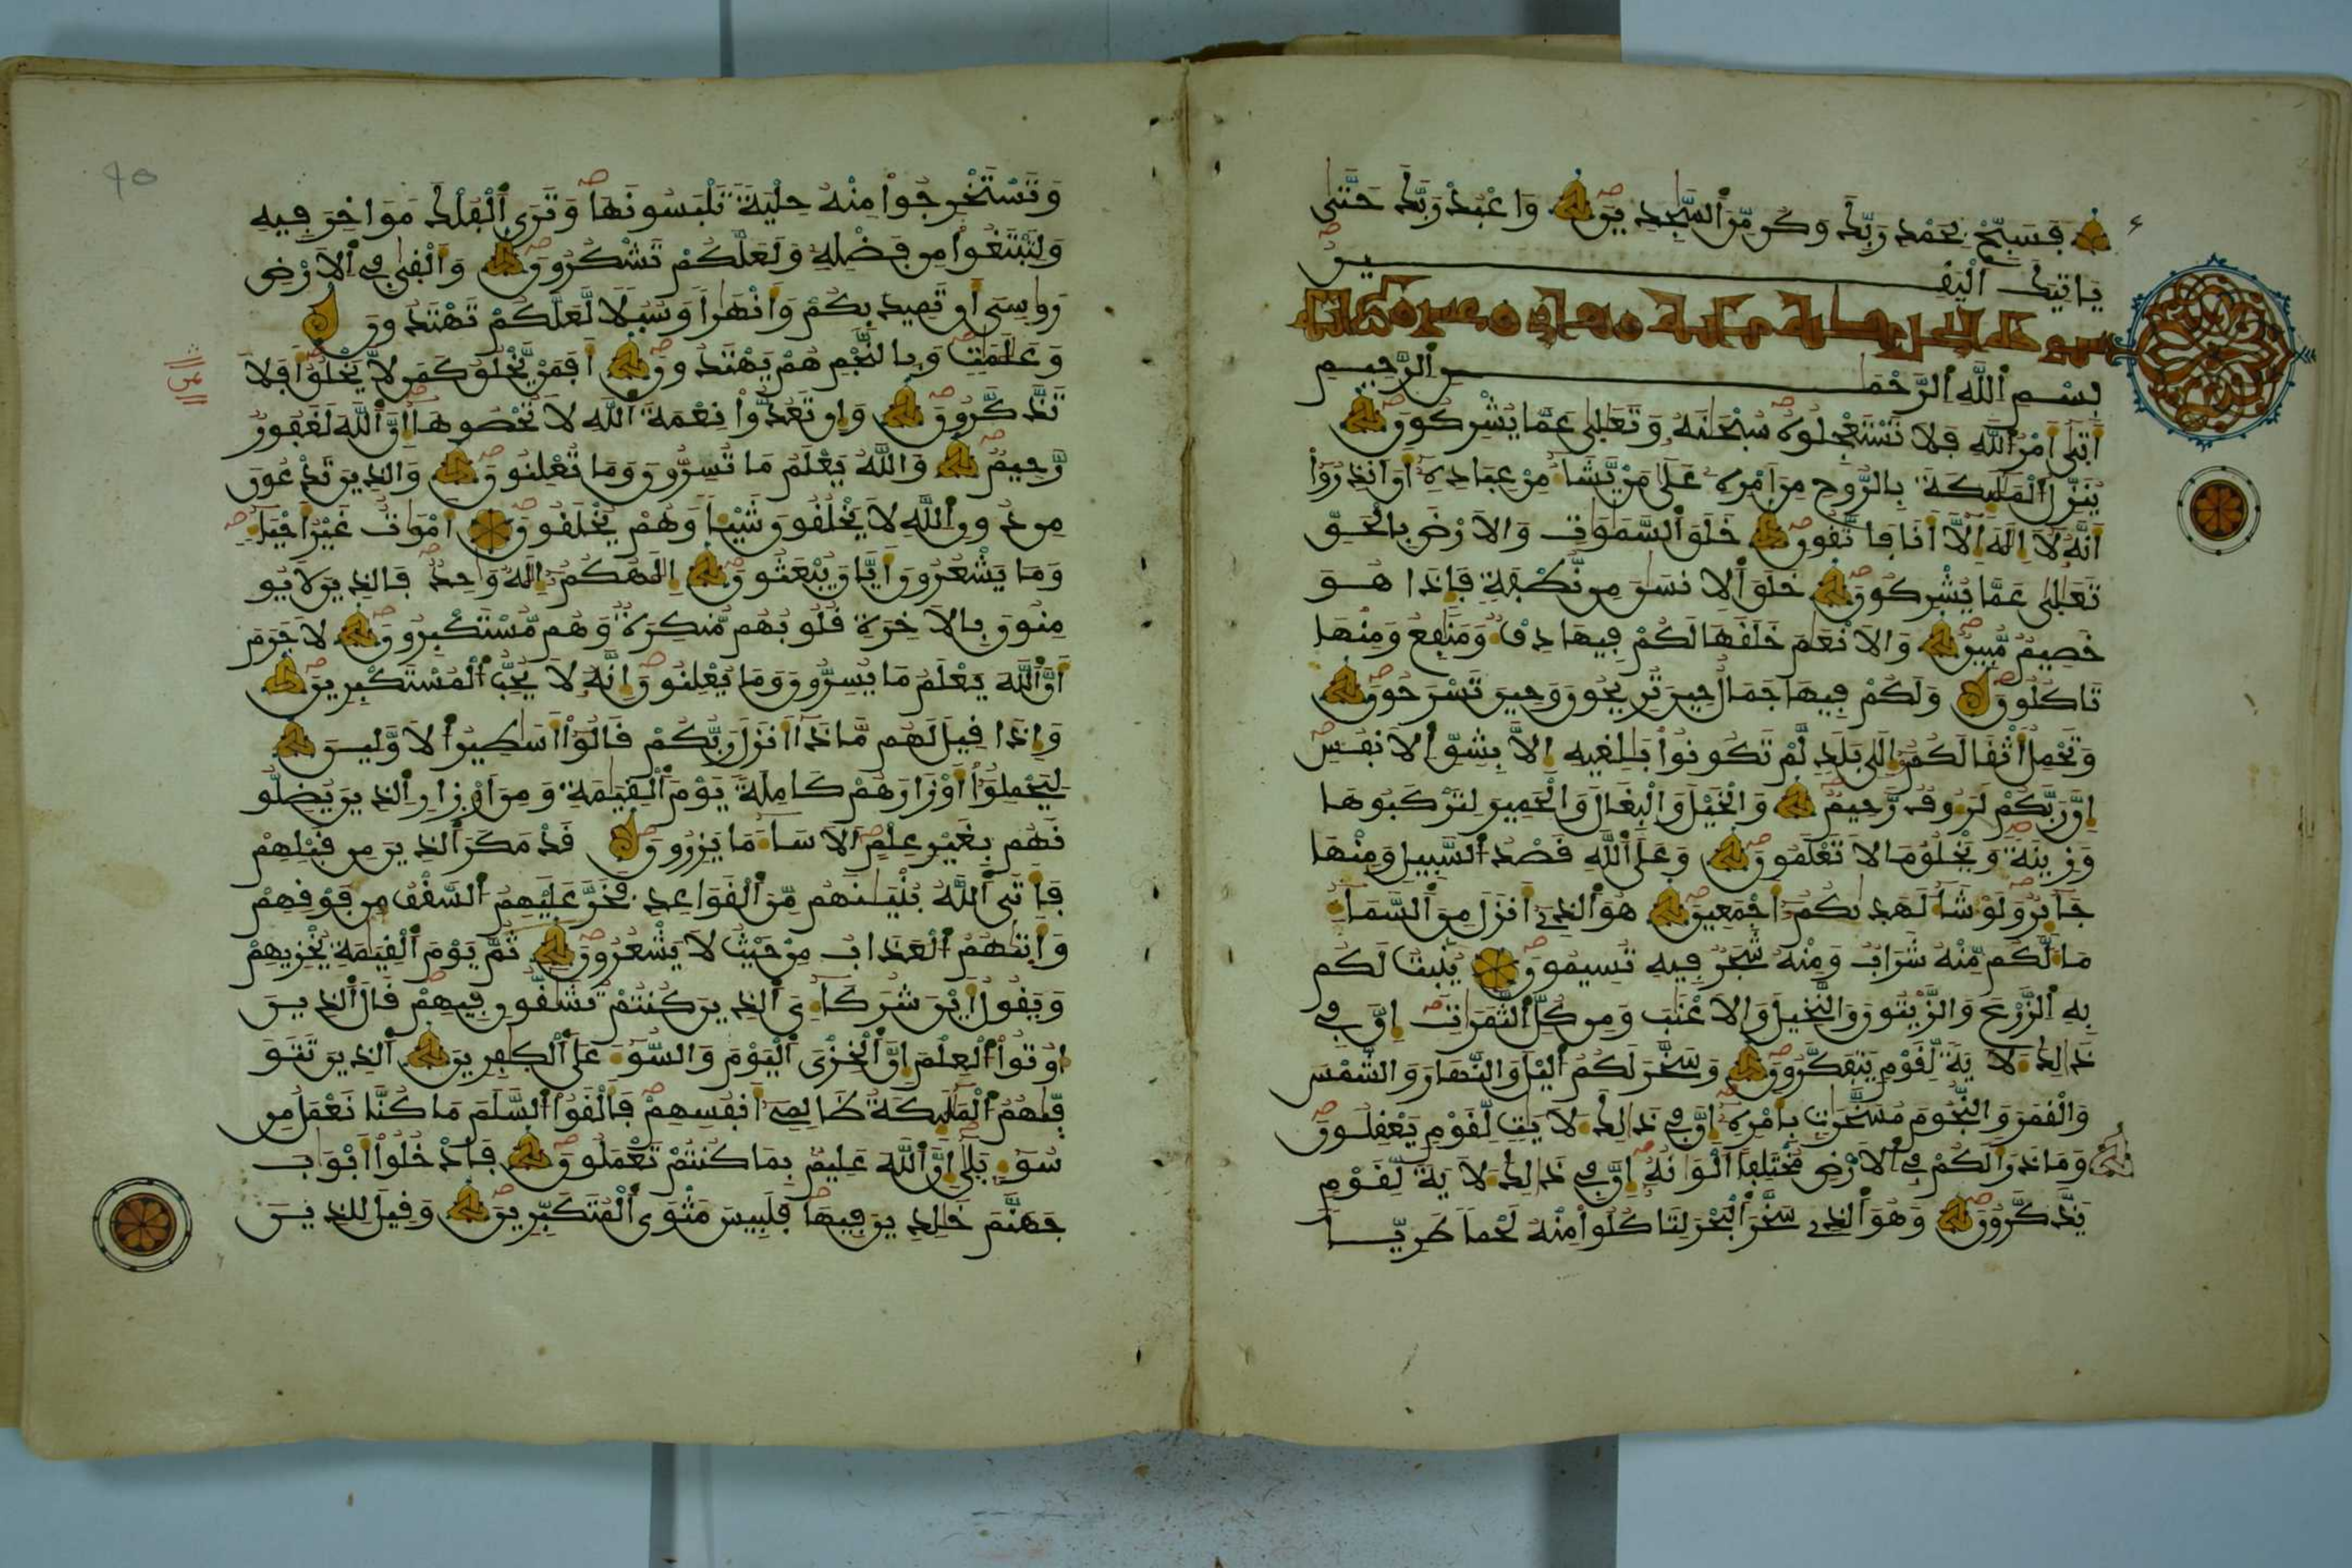 فَسَبِّحْ بِحَمْدِ رَبِّكَ وَكُن مِّنَ ٱلسَّٰجِدِينَ وَاعْبُدْ رَبَّكَ حَتَّىٰ
يَاتِيَكَ ٱلْيَقِينُ
سورة النحل
بِسْمِ ٱللَّهِ ٱلرَّحْمَٰنِ ٱلرَّحِيمِ
أَتَىٰ أَمْرُ ٱللَّهِ فَلَا تَسْتَعْجِلُوهُ سُبْحَٰنَهُ وَتَعَٰلَىٰ عَمَّا يُشْرِكُونَ
يُنَزِّلُ ٱلْمَلَٰٓئِكَةَ بِالرُّوحِ مِنَ أَمْرِهِ عَلَىٰ مَنْ يَّشَآءُ مِنْ عِبَادِهِ أَنَ أَنذِرُوٓا
أَنَّهُ لَآ إِلَٰهَ إِلَّآ أَنَا فَاتَّقُونِ خَلَقَ ٱلسَّمَٰوَٰتِ وَالَارْضَ بِالْحَقِّ
تَعَٰلَىٰ عَمَّا يُشْرِكُونَ خَلَقَ ٱلِانسَٰنَ مِن نُّطْفَةٍ فَإِذَا هُوَ
خَصِيمٌ مُّبِينٌ وَالَانْعَٰمَ خَلَقَهَا لَكُمْ فِيهَا دِفْءٌ وَمَنَٰفِعُ وَمِنْهَا
تَاكُلُونَ وَلَكُمْ فِيهَا جَمَالٌ حِينَ تُرِيحُونَ وَحِينَ تَسْرَحُونَ
وَتَحْمِلُ أَثْقَالَكُمُ إِلَىٰ بَلَدٍ لَّمْ تَكُونُوا بَٰلِغِيهِ إِلَّا بِشِقِّ ٱلَانفُسِ
إِنَّ رَبَّكُمْ لَرَءُوفٌ رَّحِيمٌ وَالْخَيْلَ وَالْبِغَالَ وَالْحَمِيرَ لِتَرْكَبُوهَا
وَزِينَةً وَيَخْلُقُ مَا لَا تَعْلَمُونَ وَعَلَى ٱللَّهِ قَصْدُ ٱلسَّبِيلِ وَمِنْهَا
جَآئِرٌ وَلَوْ شَآءَ لَهَدَىٰكُمُ أَجْمَعِينَ هُوَ ٱلذِےٓ أَنزَلَ مِنَ ٱلسَّمَآءِ
مَآءً لَّكُم مِّنْهُ شَرَابٌ وَمِنْهُ شَجَرٌ فِيهِ تُسِيمُونَ يُنۢبِتُ لَكُم
بِهِ ٱلزَّرْعَ وَالزَّيْتُونَ وَالنَّخِيلَ وَالَاعْنَٰبَ وَمِن كُلِّ ٱلثَّمَرَٰتِ إِنَّ فِے
ذَٰلِكَ لَأَيَةً لِّقَوْمٍ يَتَفَكَّرُونَ وَسَخَّرَ لَكُمُ ٱلَّيْلَ وَالنَّهَارَ وَالشَّمْسَ
وَالْقَمَرَ وَالنُّجُومَ مُسَخَّرَٰتٍ بِأَمْرِهِ إِنَّ فِے ذَٰلِكَ لَأَيَٰتٍ لِّقَوْمٍ يَعْقِلُونَ
وَمَا ذَرَأَ لَكُمْ فِے ٱلَارْضِ مُخْتَلِفًا أَلْوَٰنُهُ إِنَّ فِے ذَٰلِكَ لَأَيَةً لِّقَوْمٍ
يَذَّكَّرُونَ وَهُوَ ٱلذِے سَخَّرَ ٱلْبَحْرَ لِتَاكُلُوا مِنْهُ لَحْمًا طَرِيًّا
وَتَسْتَخْرِجُوا مِنْهُ حِلْيَةً تَلْبَسُونَهَا وَتَرَى ٱلْفُلْكَ مَوَاخِرَ فِيهِ
وَلِتَبْتَغُوا مِن فَضْلِهِ وَلَعَلَّكُمْ تَشْكُرُونَ وَأَلْقَىٰ فِے ٱلَارْضِ
رَوَٰسِيَ أَن تَمِيدَ بِكُمْ وَأَنْهَٰرًا وَسُبُلًا لَّعَلَّكُمْ تَهْتَدُونَ
وَعَلَٰمَٰتٍ وَبِالنَّجْمِ هُمْ يَهْتَدُونَ أَفَمَنْ يَّخْلُقُ كَمَن لَّا يَخْلُقُ أَفَلَا
تَذَّكَّرُونَ وَإِن تَعُدُّوا نِعْمَةَ ٱللَّهِ لَا تُحْصُوهَآ إِنَّ ٱللَّهَ لَغَفُورٌ
رَّحِيمٌ وَاللَّهُ يَعْلَمُ مَا تُسِرُّونَ وَمَا تُعْلِنُونَ وَالذِينَ تَدْعُونَ
مِن دُونِ ٱللَّهِ لَا يَخْلُقُونَ شَيْئًا وَهُمْ يُخْلَقُونَ أَمْوَٰتٌ غَيْرُ أَحْيَآءٍ
وَمَا يَشْعُرُونَ أَيَّانَ يُبْعَثُونَ إِلَٰهُكُمُ إِلَٰهٌ وَٰحِدٌ فَالذِينَ لَا يُو
مِنُونَ بِالَاخِرَةِ قُلُوبُهُم مُّنكِرَةٌ وَهُم مُّسْتَكْبِرُونَ لَا جَرَمَ
أَنَّ ٱللَّهَ يَعْلَمُ مَا يُسِرُّونَ وَمَا يُعْلِنُونَ إِنَّهُ لَا يُحِبُّ ٱلْمُسْتَكْبِرِينَ
وَإِذَا قِيلَ لَهُم مَّاذَآ أَنزَلَ رَبُّكُمْ قَالُوٓا أَسَٰطِيرُ ٱلَاوَّلِينَ
لِيَحْمِلُوٓا أَوْزَارَهُمْ كَامِلَةً يَوْمَ ٱلْقِيَٰمَةِ وَمِنَ أَوْزَارِ ٱلذِينَ يُضِلُّو
نَهُم بِغَيْرِ عِلْمٍ أَلَا سَآءَ مَا يَزِرُونَ قَدْ مَكَرَ ٱلذِينَ مِن قَبْلِهِمْ
فَأَتَى ٱللَّهُ بُنْيَٰنَهُم مِّنَ ٱلْقَوَاعِدِ فَخَرَّ عَلَيْهِمُ ٱلسَّقْفُ مِن فَوْقِهِمْ
وَأَتَىٰهُمُ ٱلْعَذَابُ مِنْ حَيْثُ لَا يَشْعُرُونَ ثُمَّ يَوْمَ ٱلْقِيَٰمَةِ يُخْزِيهِمْ
وَيَقُولُ أَيْنَ شُرَكَآءِيَ ٱلذِينَ كُنتُمْ تُشَٰٓقُّونِ فِيهِمْ قَالَ ٱلذِينَ
أُوتُوا ٱلْعِلْمَ إِنَّ ٱلْخِزْيَ ٱلْيَوْمَ وَالسُّوٓءَ عَلَى ٱلْكَٰفِرِينَ ٱلذِينَ تَتَوَ
فَّىٰهُمُ ٱلْمَلَٰٓئِكَةُ ظَالِمِےٓ أَنفُسِهِمْ فَأَلْقَوُا ٱلسَّلَمَ مَا كُنَّا نَعْمَلُ مِن
سُوٓءٍ بَلَىٰٓ إِنَّ ٱللَّهَ عَلِيمٌ بِمَا كُنتُمْ تَعْمَلُونَ فَادْخُلُوٓا أَبْوَٰبَ
جَهَنَّمَ خَٰلِدِينَ فِيهَا فَلَبِيسَ مَثْوَى ٱلْمُتَكَبِّرِينَ وَقِيلَ لِلذِينَ